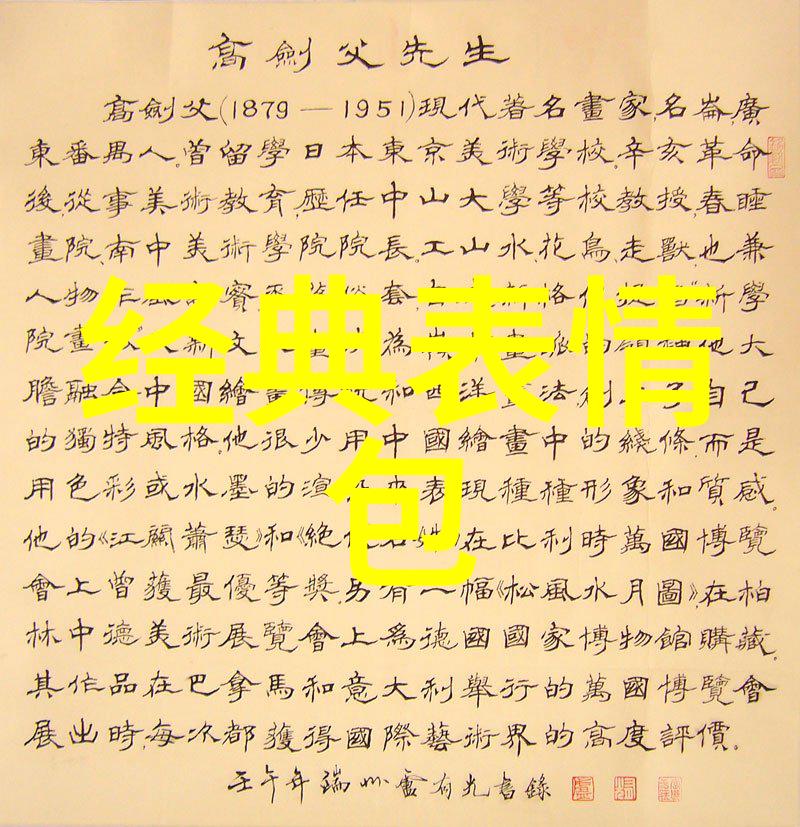 高劍父先生
高劍父(1879—1951)現代著名畫家,名崙,廣
東番禺人。曾留學日本東京美術學校。辛亥革命
後,從事美術教育,歷任中山大學等校教授,春睡
畫院、南中美術學院院長。工山水、花鳥、走獸,也兼
人物 套 新 格 新學
院畫 新文 為 畫 的 他大
膽融合中國繪 和西洋 法 自己
的獨特風格。他很少用中國繪畫中的綫條,而是
用色彩或水墨的渲 表現種種形象和質感。
他的《江關蕭瑟》和《絕 》在比利時萬國博覽
會上曾獲最優等獎。另有一幅《松風水月圖》,在柏
林中德美術展覽會上爲德國國家博物館購藏。
其作品在巴拿馬和意大利舉行的萬國博覽會
展出時,每次都獲得國際藝術界的高度評價。
壬午年端州盧有光書錄
经典表情
包